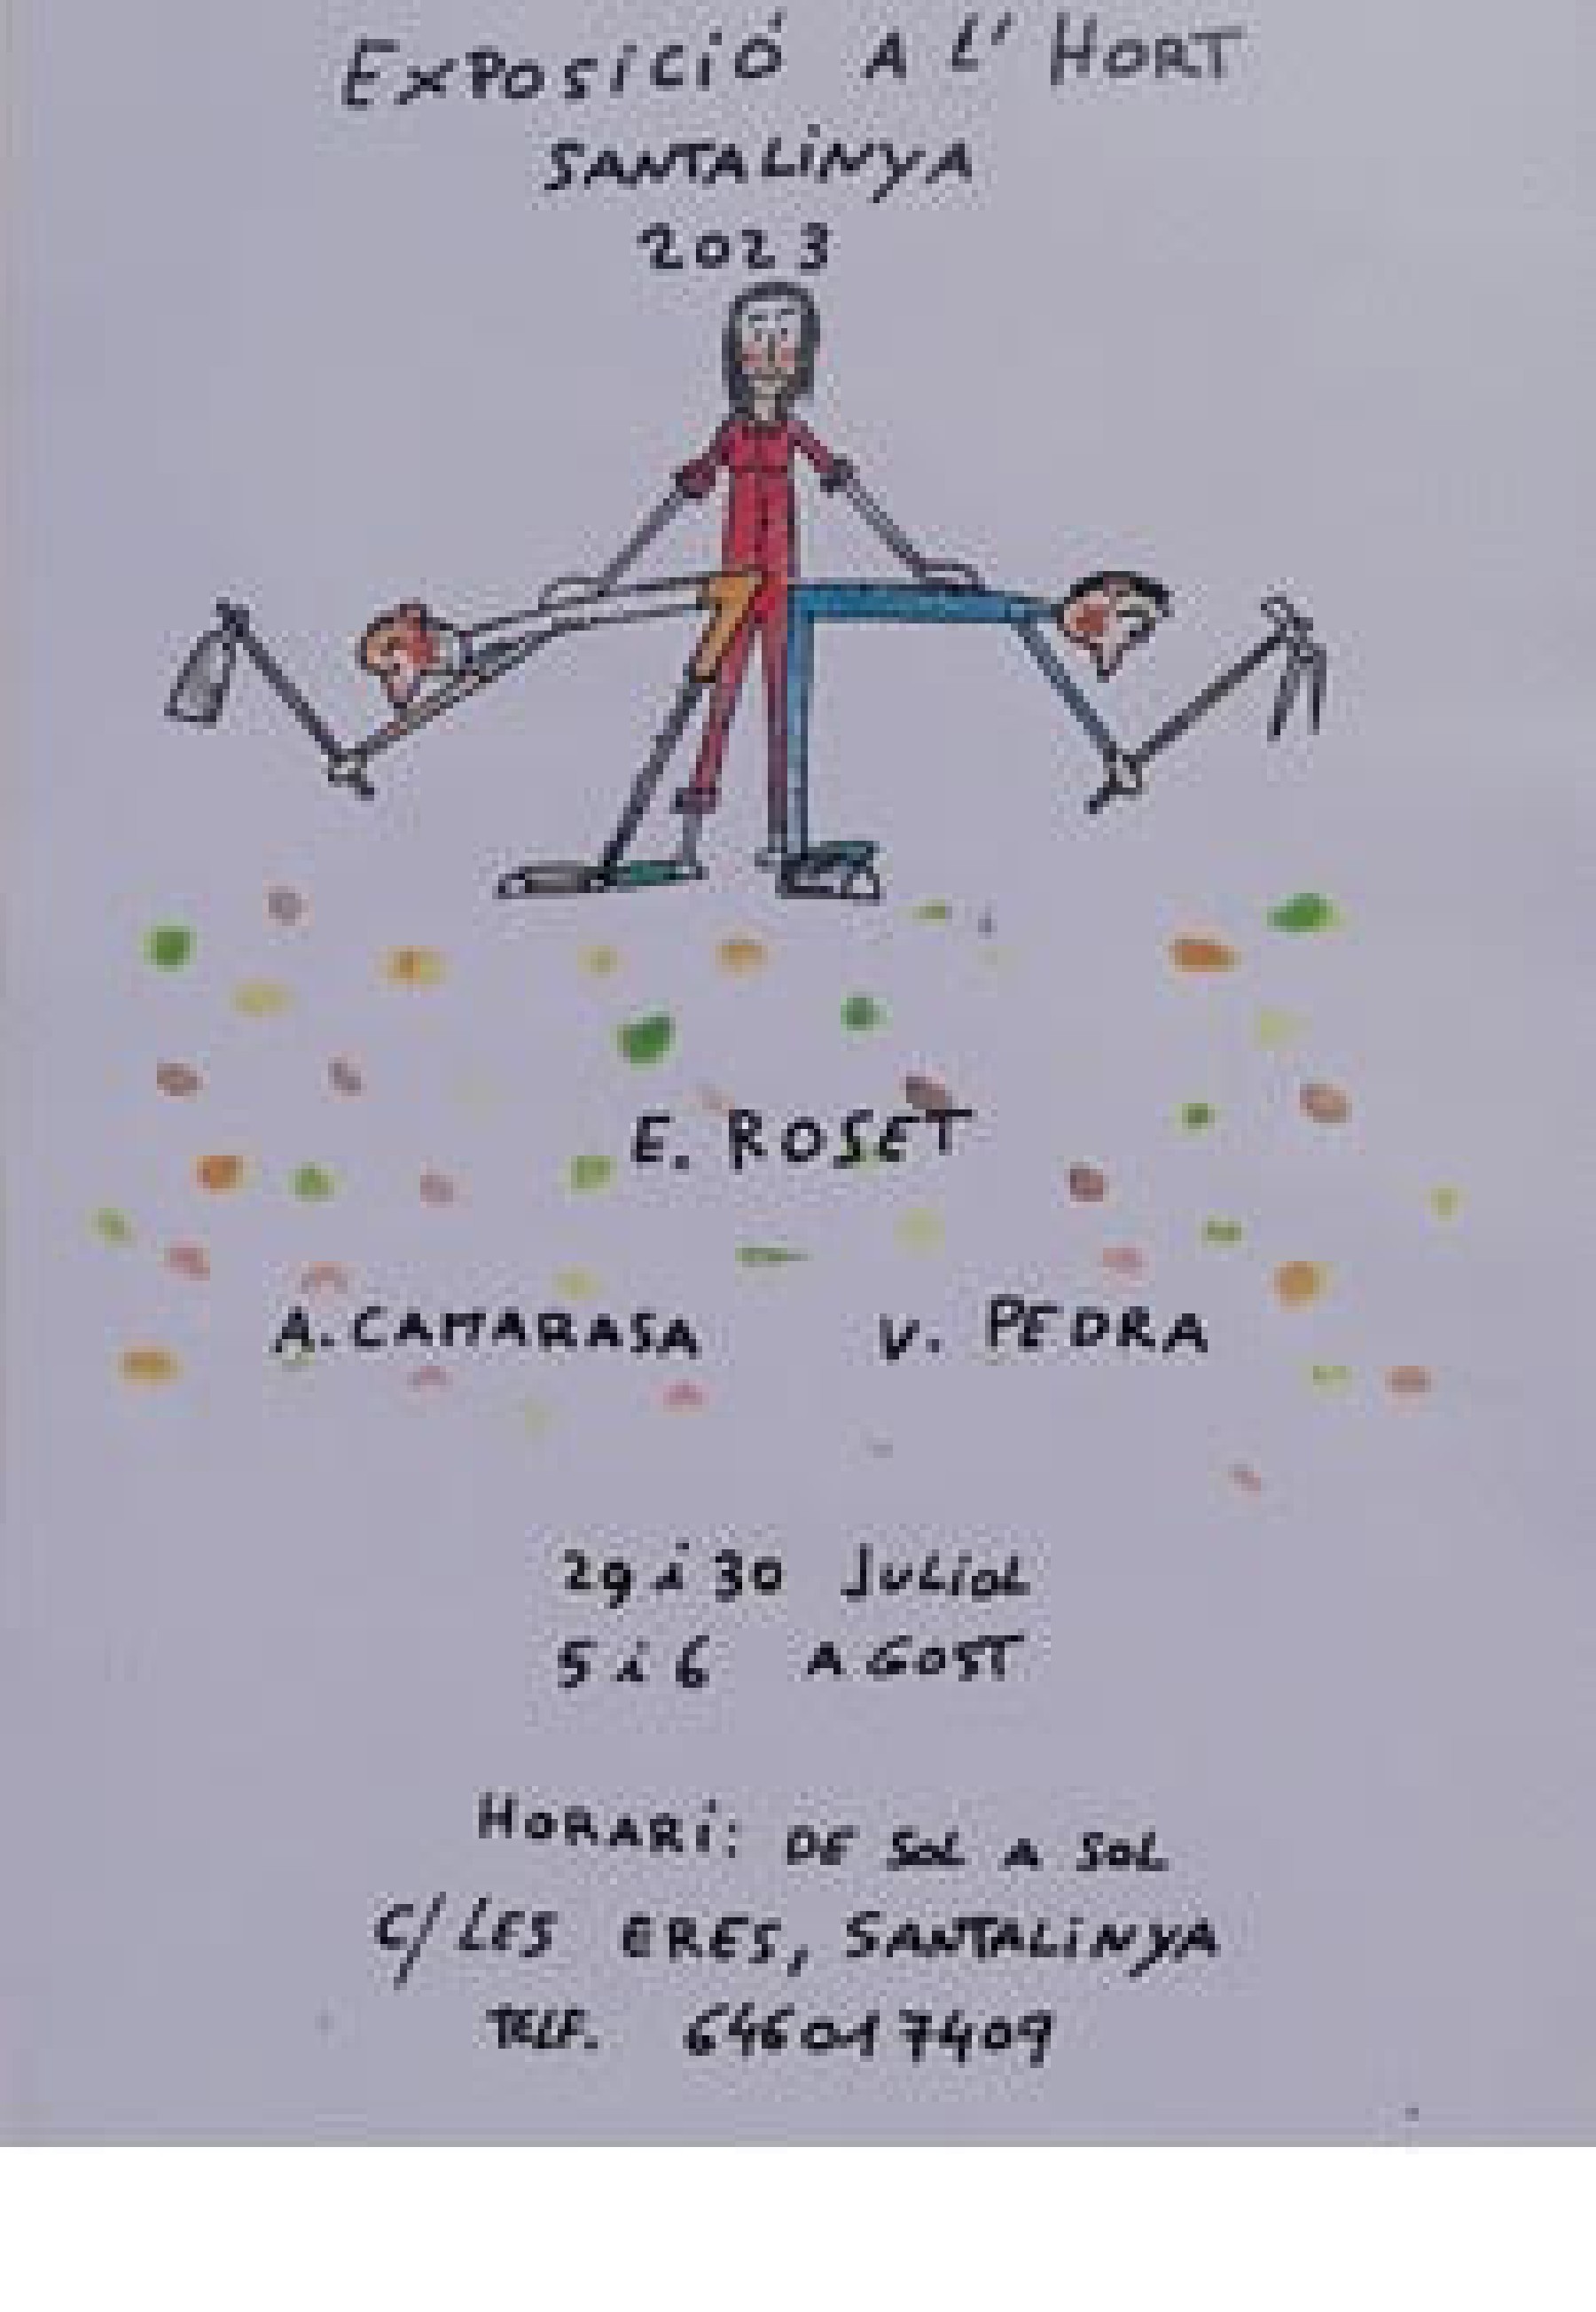 EXPOSICIÓ A L' HORT
SANTALINYA
2023
E. ROSET
A. CAMARASA V. PEDRA
29 i 30 JULIOL
5 i 6 AGOST
HORARI: DE SOL A SOL
C/ LES ERES, SANTALINYA
TELF. 646017409